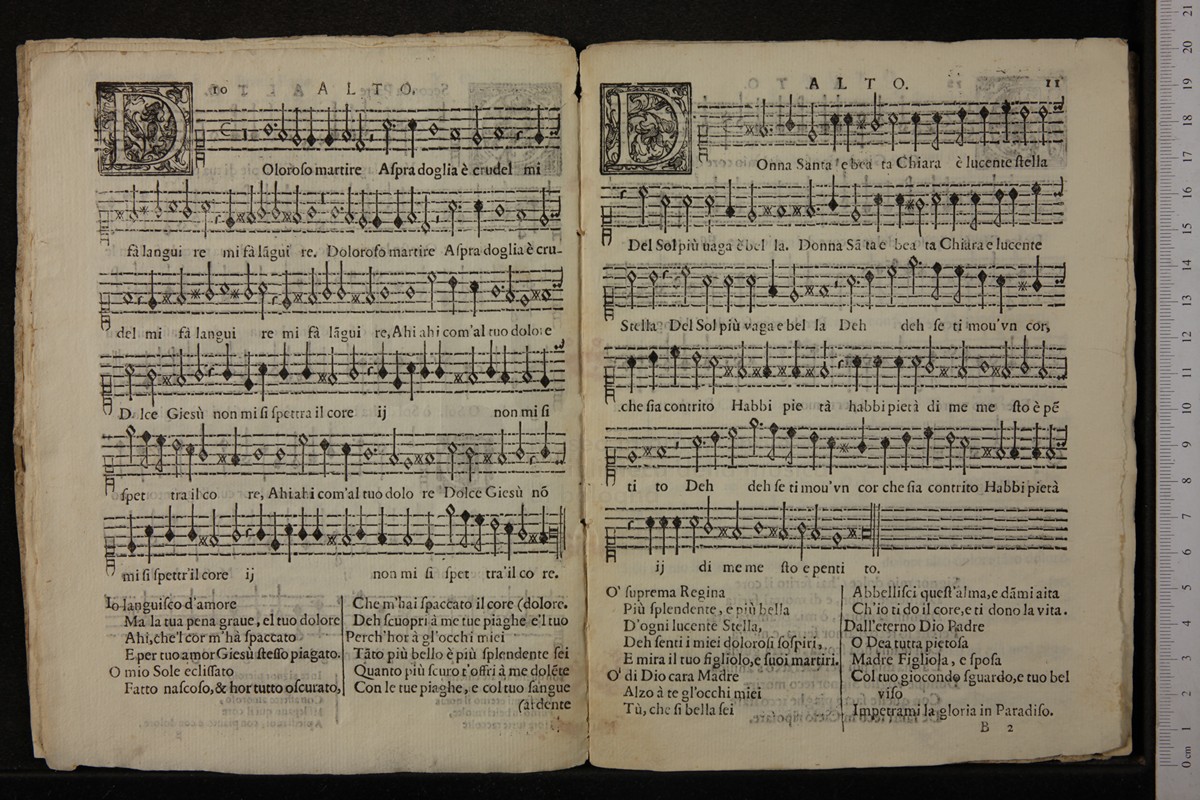 10 ALTO.
DOloroso martire Aspra doglia è crudel mi
fà langui re mi fà lãgui re. Doloroso martire Aspra doglia è cru-
del mi fà langui re mi fà lãgui re, Ahi ahi com'al tuo dolore
Dolce Giesù non mi si spettra il core ij non mi si
spet tra il co re, Ahi ahi com'al tuo dolo re Dolce Giesù nõ
mi si spettr'il core ij non mi si spet tra'il co re.
Io languisco d'amore
Ma la tua pena graue, el tuo dolore
Ahi, che'l cor m'hà spaccato
E per tuo amor Giesù stesso piagato.
O mio Sole eclissato
Fatto nascoso, & hor tutto oscurato,
Che m'hai spaccato il core (dolore.
Deh scuopri à me tue piaghe e'l tuo
Perch'hor à gl'occhi miei
Tãto più bello è più splendente sei
Quanto più scuro t'offri à me dolẽte
Con le tue piaghe, e col tuo sangue
(ardente
ALTO. 11
DOnna Santa e bea ta Chiara è lucente stella
Del Sol più uaga è bel la. Donna Sã ta e bea ta Chiara e lucente
Stella Del Sol più vaga e bel la Deh deh se ti mou'vn cor,
che sia contrito Habbi pie tà habbi pietà di me me sto è pẽ
ti to Deh deh se ti mou'vn cor che sia contrito Habbi pietà
ij di me me sto e penti to.
O' suprema Regina
Più splendente, e più bella
D'ogni lucente Stella,
Deh senti i miei dolorosi sospiri,
E mira il tuo figliolo, e suoi martiri.
O' di Dio cara Madre
Alzo à te gl'occhi miei
Tù, che sì bella sei
Abbellisci quest'alma, e dãmi aita
Ch'io ti do il core, e ti dono la vita.
Dall'eterno Dio Padre
O Dea tutta pietosa
Madre Figliola, e sposa
Col tuo giocondo sguardo, e tuo bel
viso
Impetrami la gloria in Paradiso.
B 2
0 cm 1 2 3 4 5 6 7 8 9 10 11 12 13 14 15 16 17 18 19 20 21